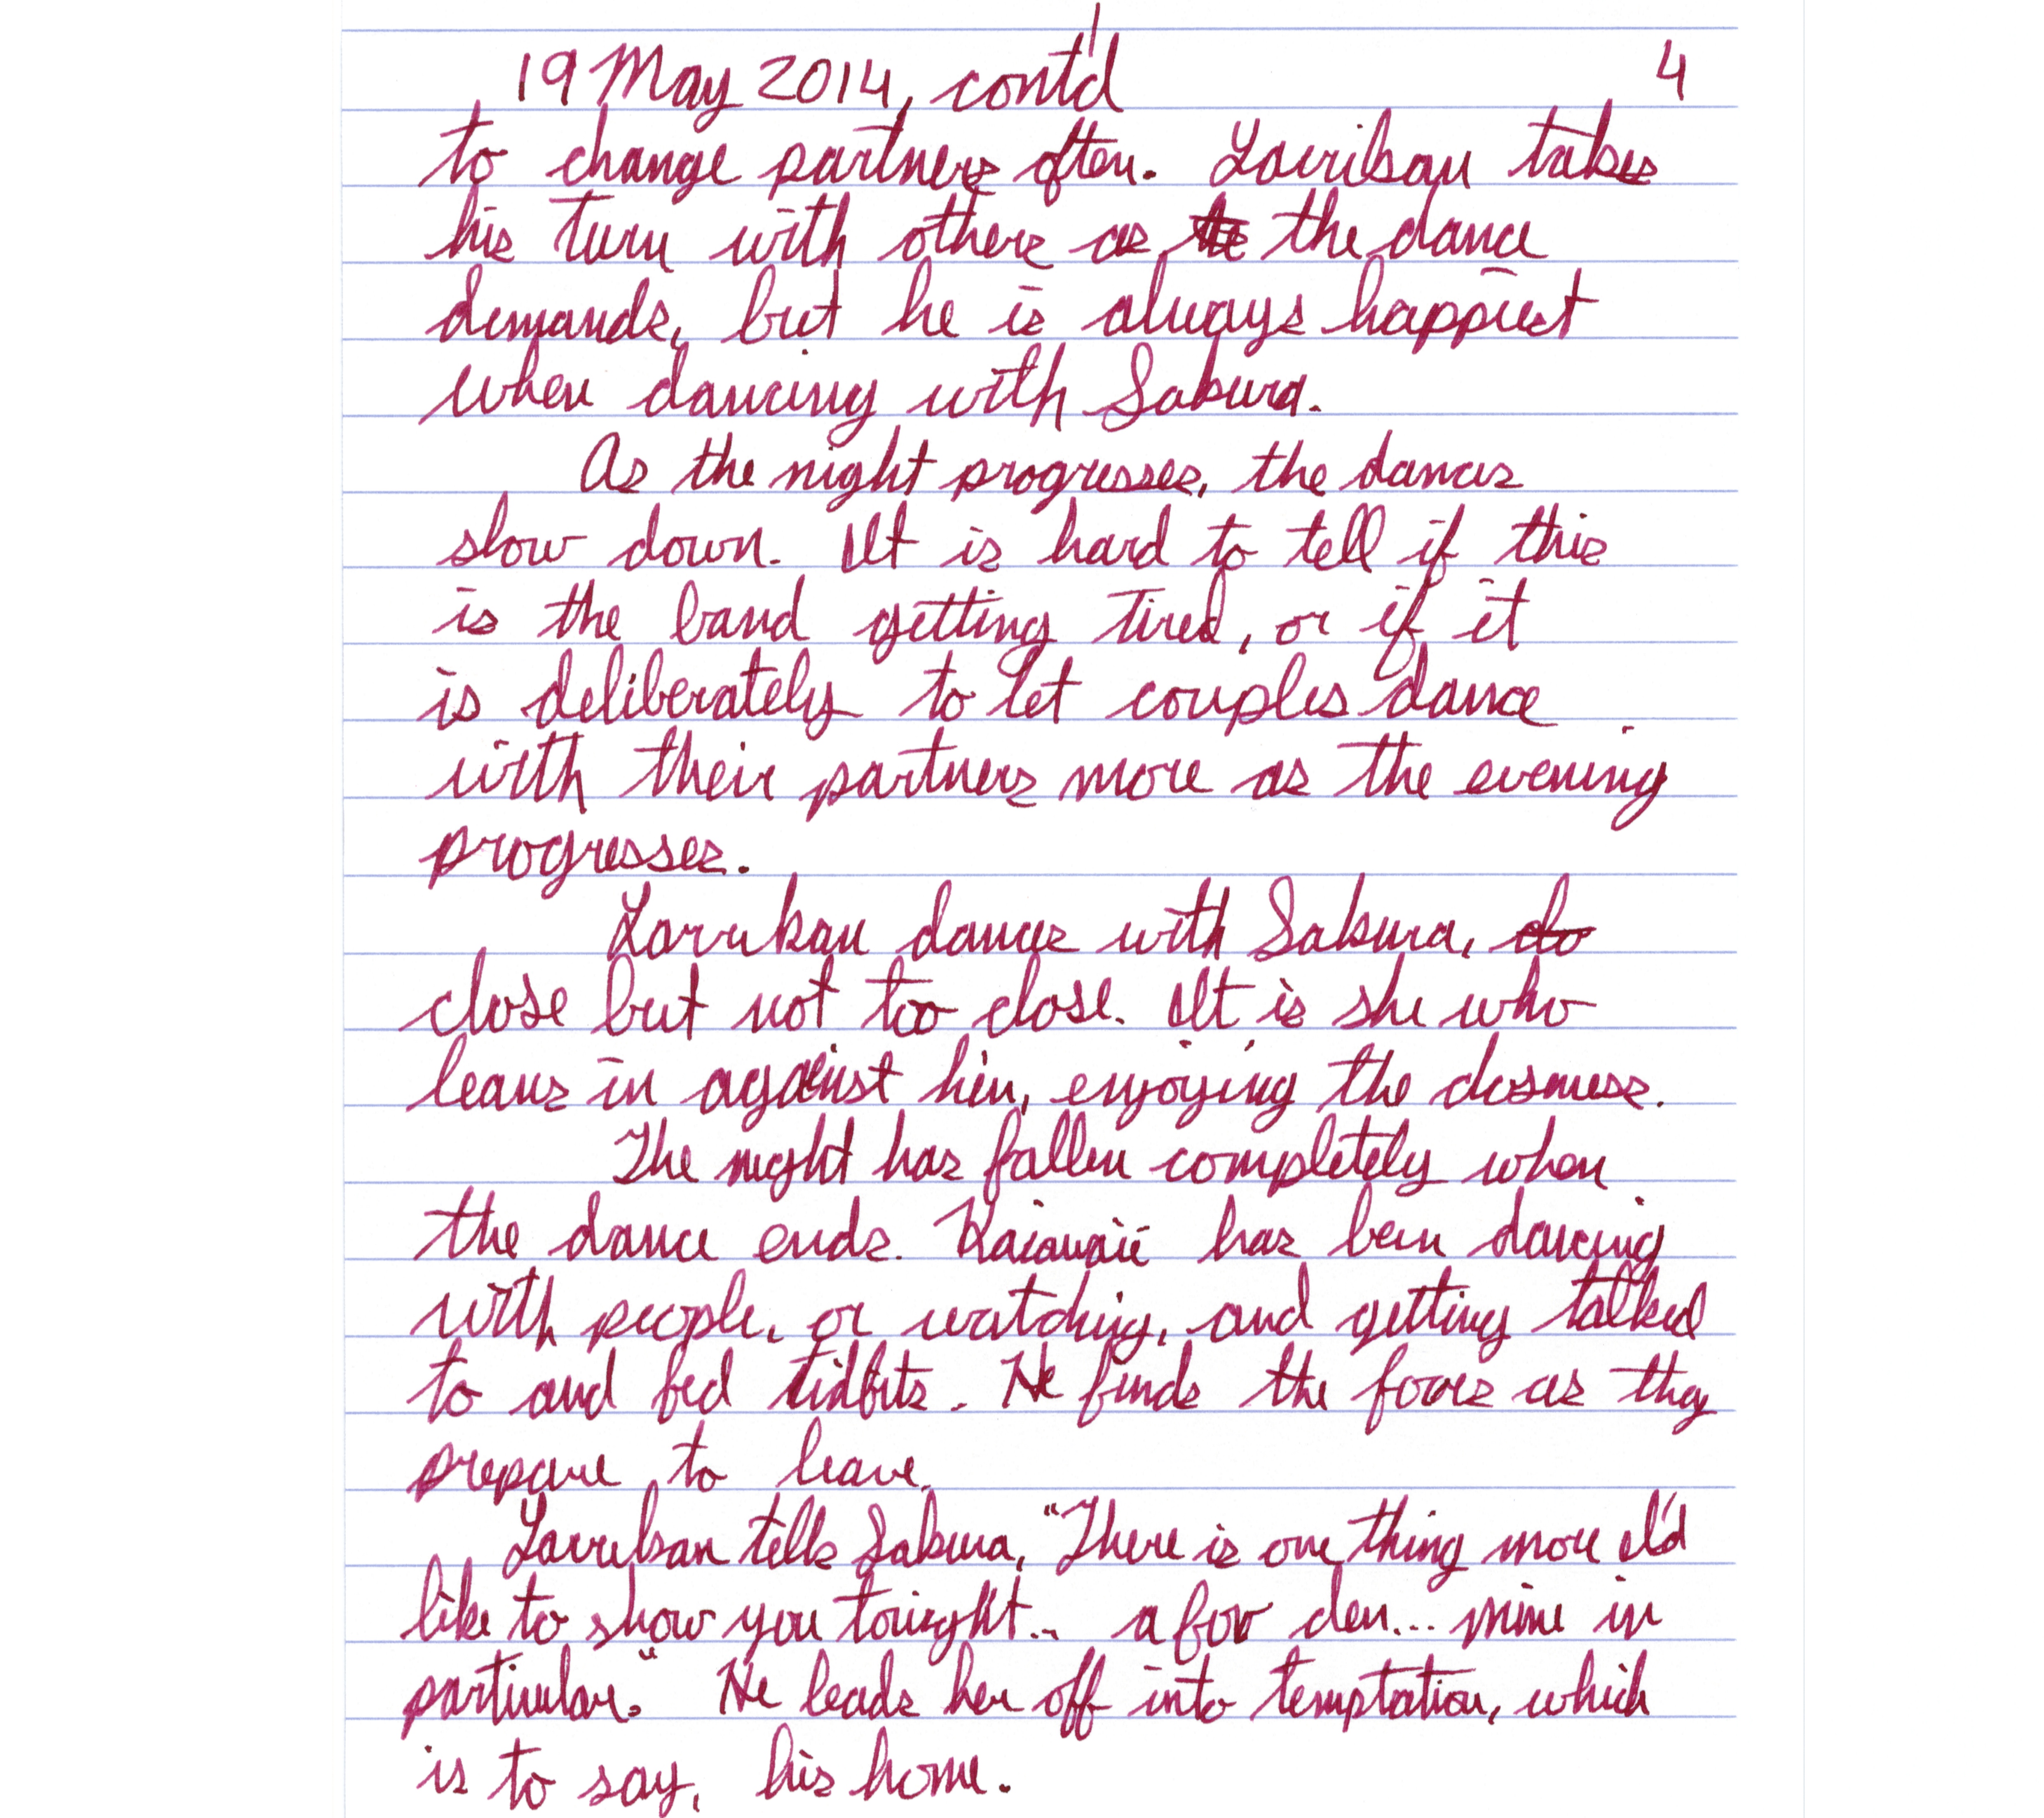 19 May 2014, cont'd 4
to change partners often. Lavrikan takes
his turn with others as the dance
demands, but he is always happiest
when dancing with Sakura.
As the night progresses, the dances
slow down. It is hard to tell if this
is the band getting tired, or if it
is deliberately to let couples dance
with their partners more as the evening
progresses.
Lavrikan dances with Sakura, do
close but not too close. It is she who
leans in against him, enjoying the closeness.
The night has fallen completely when
the dance ends. has been dancing
with people, or watching, and getting talked
to and fed tidbits. He finds the foxes as they
prepare to leave.
Lavrikan tells Sakura, "There is one thing more I'd
like to show you tonight... a fox den... mine in
particular." He leads her off into temptation, which
is to say, his home.